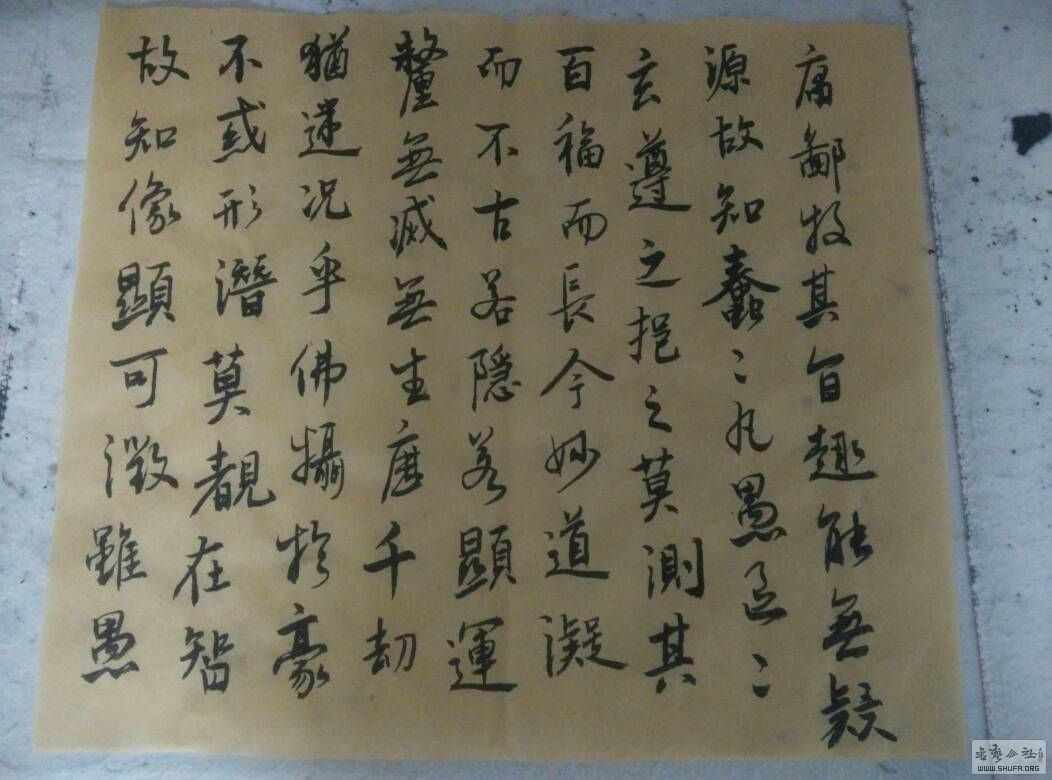 故知像顯可徵雖愚
不惑形潛莫覩在智
猶迷况乎佛攝於豪
釐無滅無生歷千劫
而不古若隱若顯運
百福而長今妙道凝
玄遵之挹之莫測其
源故知蠢〻凡愚區〻
庸鄙投其旨趣能無疑
书艺公社
WWW.SHUFA.ORG